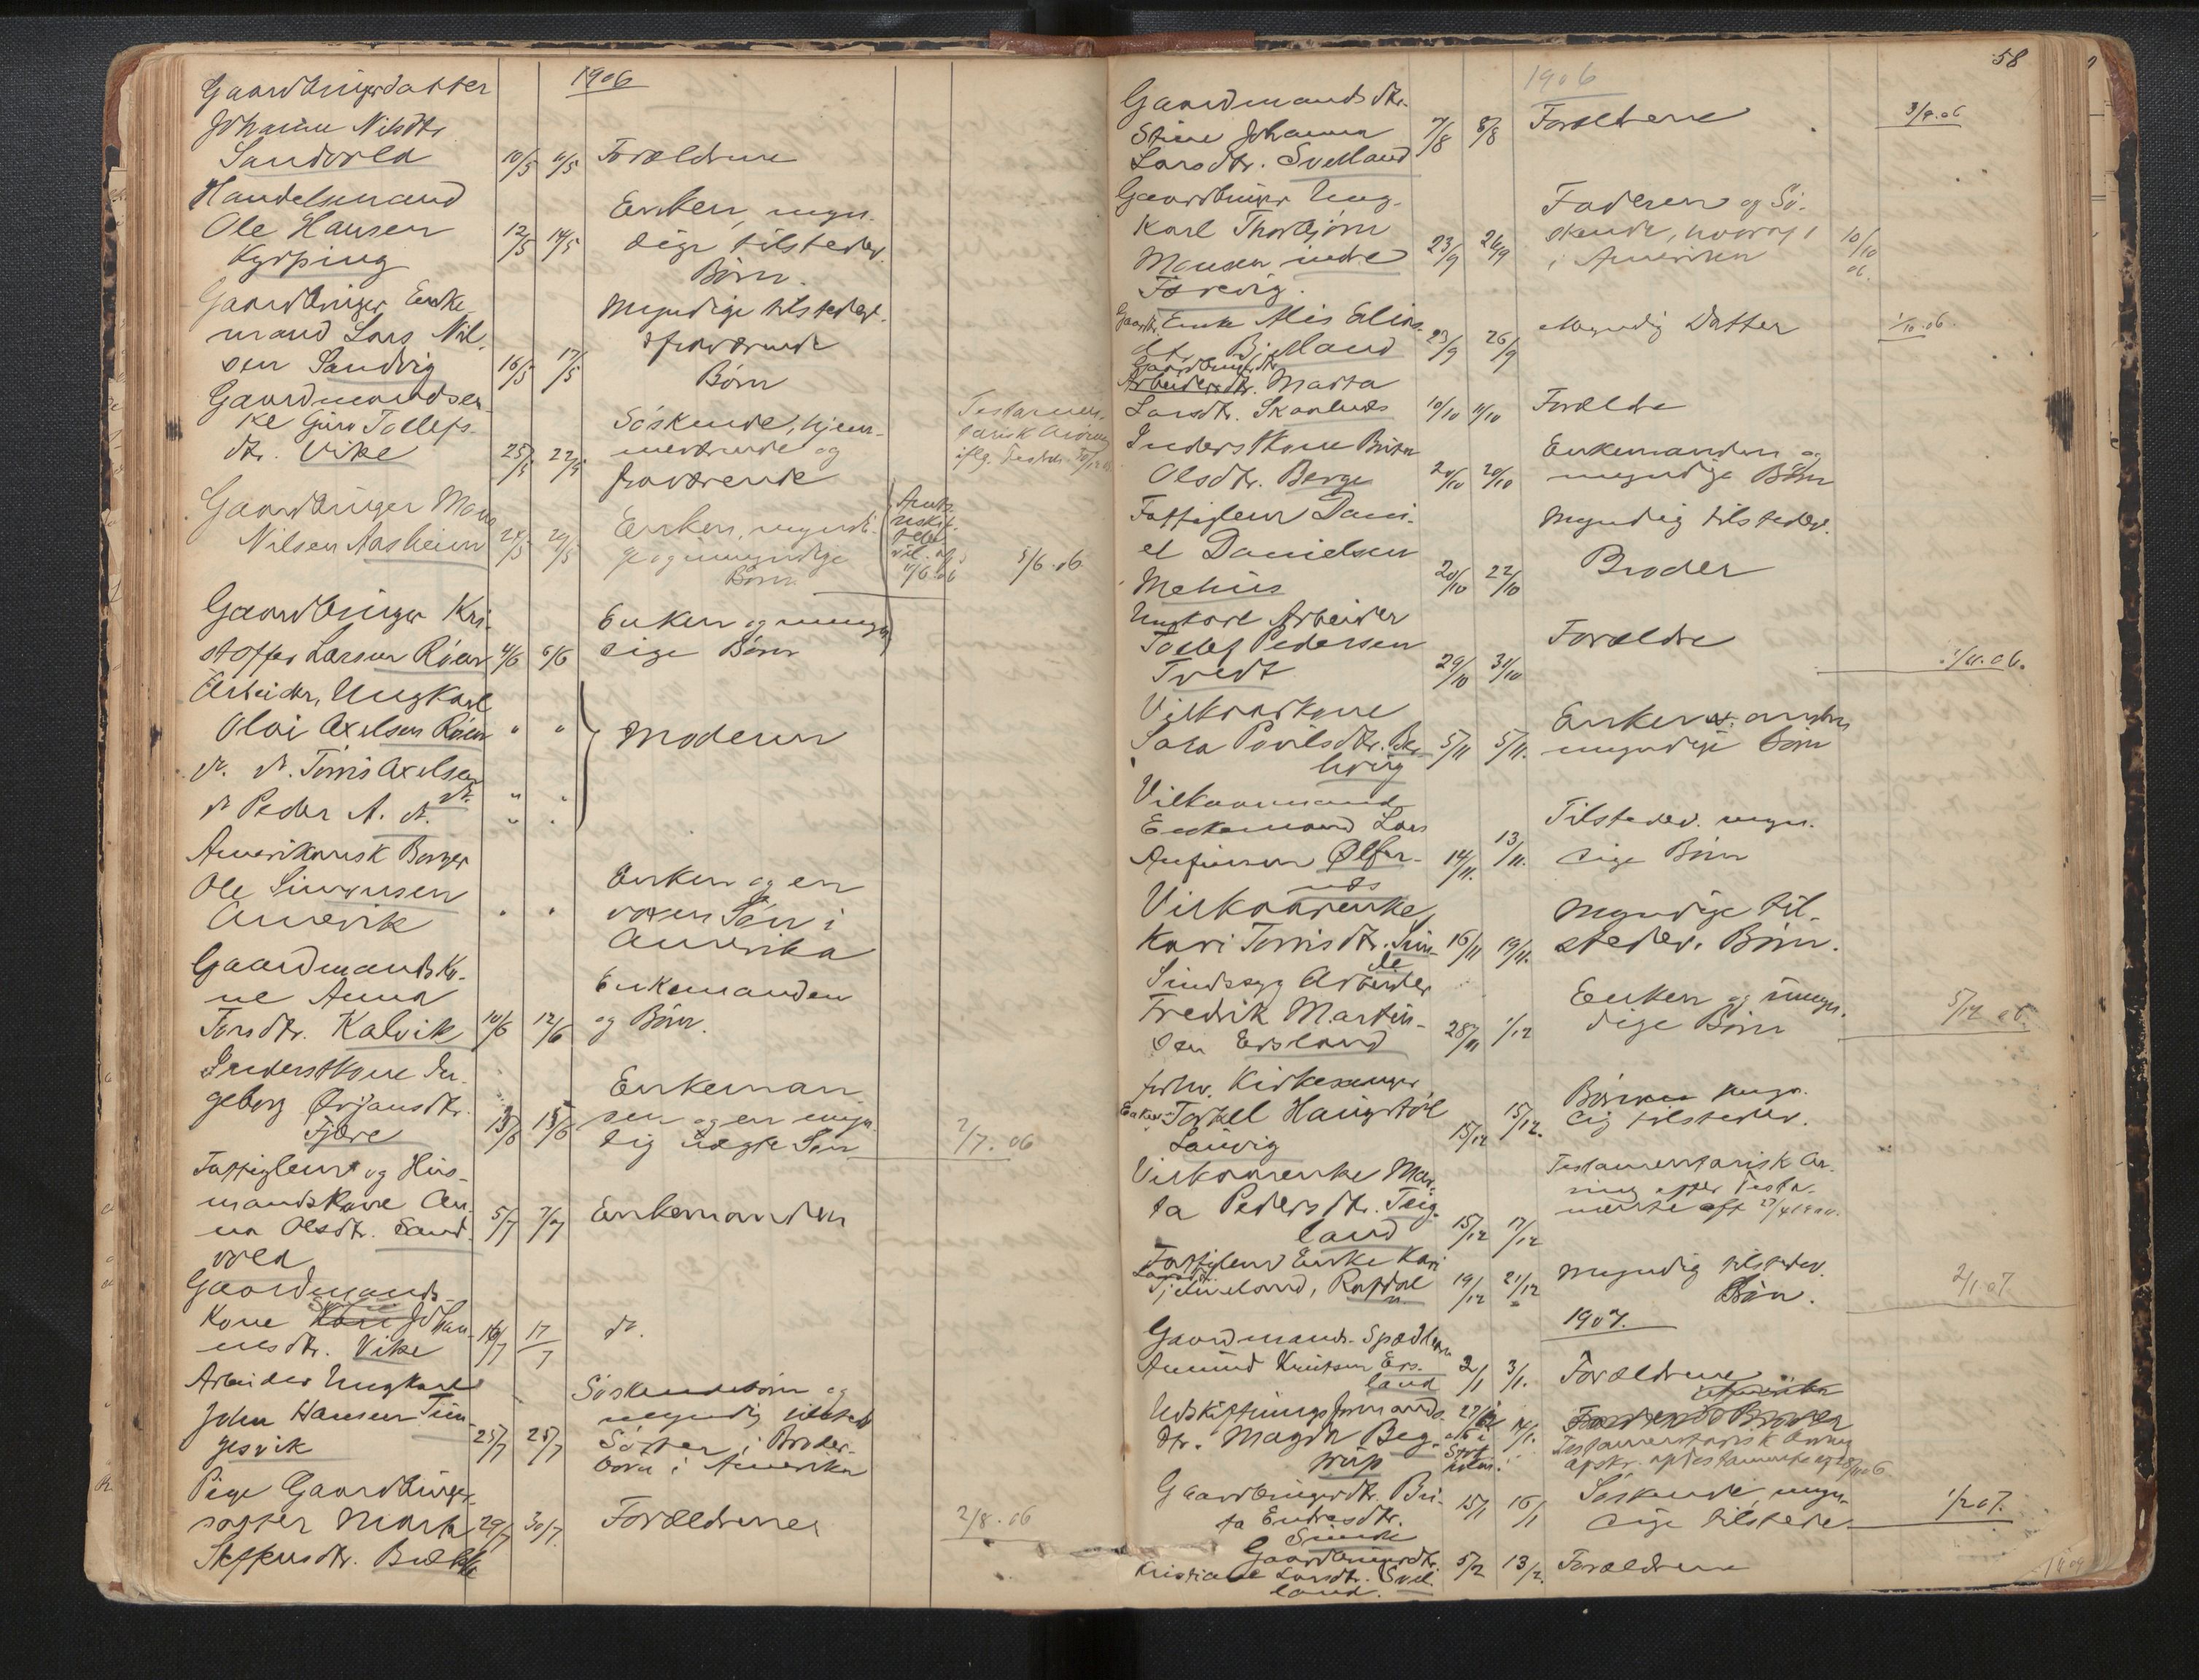 1906
Gaardbrugerdatter
Johanne Nilsdtr.
Sandvold 10/5 11/5 Forældrene
Handelsmand
Ole Hansen
Kyrping 12/5 14/5
Enken, myn-
dige tilstedev.
Børn.
Gaardbruger Enke
mand Lars Nil-
sen Sandvig 16/5 17/5
Myndige tilstedev.
& fraværende
Børn
Gaardmandsen-
ke Guro Tollefs-
dtr. Vike 25/5 22/5
Søskende, hjem-
meværende og
fraværende
Gaardbruger Mons
Nilsen Aasheim 29/5
Enken, myndi-
ge og umyndige
Børn
5/6.06
Gaardbruger Kri-
stoffer Larsen Røen 4/6 6/6
Enken og myn-
dige Børn
Arbeider, Ungkarl
Olai Axelsen Røen " "
d. d. Tørris Axelsen
d. " "
d. Peder A. d. " "
Moderen
Amerikansk Borger
Ole Simonsen
Amerik " "
Enken og en
voxen Søn i
Amerika
Gaardmandsko-
ne Anna
Torsdtr. Kalvik 10/6 12/6
Enkemanden
og Børn.
Inderstkone In-
geborg Ørjansdtr.
Fjære 13/6 15/6
Enkeman
den og en myn-
dig uægte Søn
2/7.06
Fattiglem og Hus-
mandskone An-
na Olsdtr. Sand-
vold 5/7 7/7 Enkemanden
Gaardmands-
Kone Johan-
nesdtr. Vike 16/7 17/7 d.
Arbeider Ungkarl
John Hansen Tun-
gesvik 25/7 25/7
Søskendebørn og
myndig tilsted
Søster i Broder-
børn i Amerika
Pige Gaardbruger-
datter Marta 29/7 30/7 Forældrene
Steffensdtr. Bække
2/8.06
58
1906
Gaardmandsdtr.
Stine Johanna
Larsdtr. Svelland 7/8 8/8 Forældrene
3/9.06
Gaardbruger Ung-
Karl Thorbjørn
Monsen indre
Førevig. 23/9 26/9
Faderen og Sø-
skende, hvoraf 1
i Amerika
10/10 06.
Gaardbr. Enke Alis Elias-
dtr. Bjelland 23/9 26/9 Myndig Datter
1/10.06.
Gaardbrugerdtr.
Arbeiderdtr. Marta
Larsdtr. Skarlnes 10/10 11/10 Forældre
Inderstkone Brita
Olsdtr. Berge 20/10 20/10
Enkemanden og
myndige Børn
Fattiglem Dani-
el Danielsen
Mehus 20/10 22/10
Myndig tilstedev.
Broder
Ungkarl Arbeider
Tollef Pedersen
Tvedt 29/10 31/10 Forældre
1/11.06.
Vilkaarskone
Sara Povelsdtr. Bek-
hvig 5/11 5/11.
myndige Børn
Vilkaarsmand
Enkemand Lars
Anfinsen Ølfer-
nes 14/11. 13/11.
Tilstedev. myn-
dige Børn
Vilkaarenke
Kari Torrisdtr. Sun-
de 16/11 19/11.
Myndige til-
stedev. Børn.
Sindssyg Arbeider
Fredrik Martin-
sen Ersland 28/11 1/12
Enken og umyn-
dige Børn
5/12 06.
forhv. Kirkesanger
Enkem. Torkel Haugstøl
Lauvig 15/12 15/12.
dig tilstedev.
Vilkaarenke Mar-
ta Pedersdtr. Teig-
land 15/12 17/12
Testamentarisk Ar-
ving efter Testa-
mente
Fattiglem Enke Kari
Larsdtr.
Tjelmeland, Rafdal 19/12 21/12
Myndig tilstedev.
Søn.
2/1.07
1907.
Gaardmands. Spædbarn
Amund Knutsen Ers-
land 2/1 3/1. Forældrene
Udskiftningsformands-
dtr. Magda Beg-
trup
Testamentarisk Arving
Gaardbrugerdtr. Bri-
ta Endresdtr.
Sunde 15/1 16/1
Søskende, myn-
dige tilstede-
1/2 07.
Gaardbrugerdtr.
Kristiane Larsdtr. Svel-
land. 5/2 13/2. Forældrene